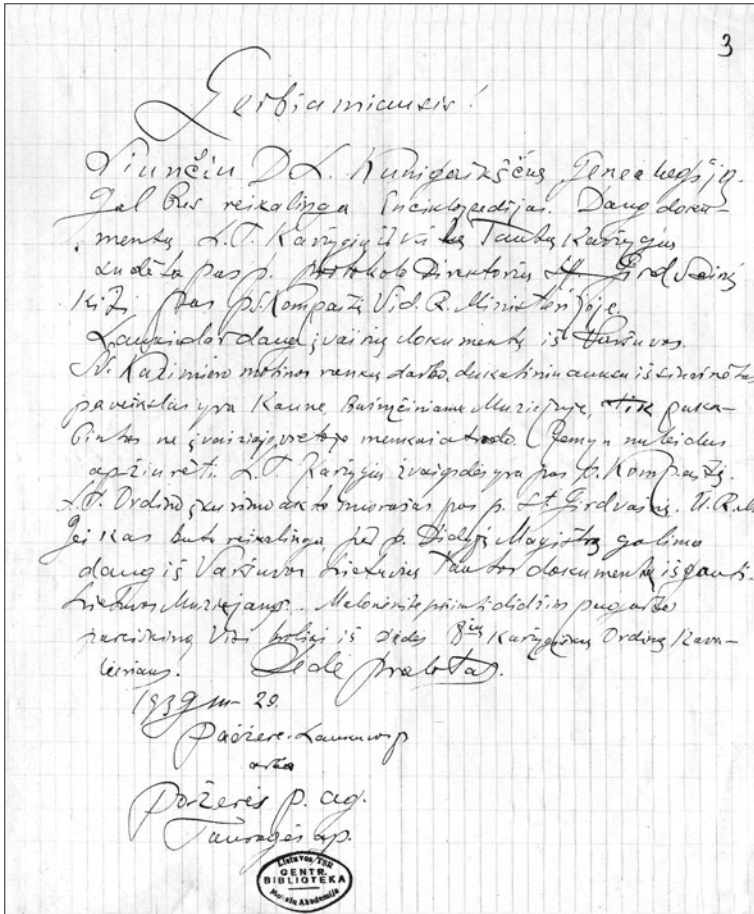 3
Gerbiamiausis!
Siunčiu D. L. Kunigaikščių Genealogiją.
Gal bus reikalinga Enciklopedijai. Daug doku-
mentų L.T. Karžygių Tautų Karžygių
sudėta pas p. protokolo Direktorių St. Girdvainį
kiti pas p. Kompaitį Vid. R. Ministerijoje.
daug įvairių dokumentų iš Varšuvos.
Šv. Kazimiero motinos rankų darbo, dukatiniu auksu išsiuvinėtas
paveikslas yra Kaune, Bažnyčiniame Muziejuje, tik paka-
bintas ne įvaizioje vietoje menkai atrodo.
apžiurėti. L.T. Karžygių žvaigzdės yra pas p. Kompaitį.
L.T. Ordino įkurimo akto nuorašas pas p. St. Girdvainį. U.R.M.
Jei kas butų reikalinga per p. Didįjį Magistrą galima
daug iš Varšuvos Lietuvių Tautos dokumentų išgauti
Lietuvos Muziejams. Malonėkite priimti didžios pagarbos
pareiškimą Visi broliai ir dėdės Karžygiškų Ordinų Kava-
lieriaus. Dėdė prelotas.
1939 III 29.
Pažerė. Laukuvos p
arba
Požerės p. ag.
Tauragės ap.
Lietuvos TSR
CENTR.
BIBLIOTEKA
Mokslų Akademija